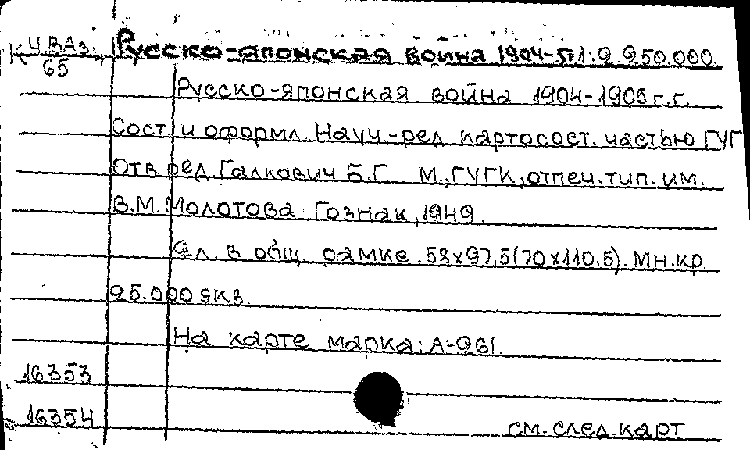 К Ц.ВАз. Русско-японская война 1904-5гг. 1:2 250.000.
65
Русско-японская война 1904-1905 г.г.
Сост. и оформл. Науч.-ред. картосост. частью ГУГК
Отв. ред. Галкович Б.Г. М., ГУГК, отпеч. тип. им.
В.М. Молотова Гознак, 1949.
2 л. в общ. рамке 58x97,5 (70x110,5). Мн. кр.
25.000 экз.
На карте марка: А-261.
16353
16354 см. след. карт